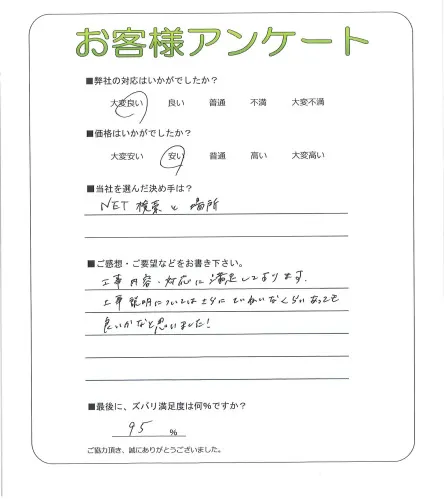 お客様アンケート
■弊社の対応はいかがでしたか？
大変良い 良い 普通 不満 大変不満
■価格はいかがでしたか？
大変安い 安い 普通 高い 大変高い
■当社を選んだ決め手は？
NET 検索と場所
■ご感想・ご要望などをお書き下さい。
工事内容・対応に満足しております.
工事説明については さらに ていねいなくらいあっても
良いかなと思いました!
■最後に、ズバリ満足度は何%ですか？
95 %
ご協力頂き、誠にありがとうございました。